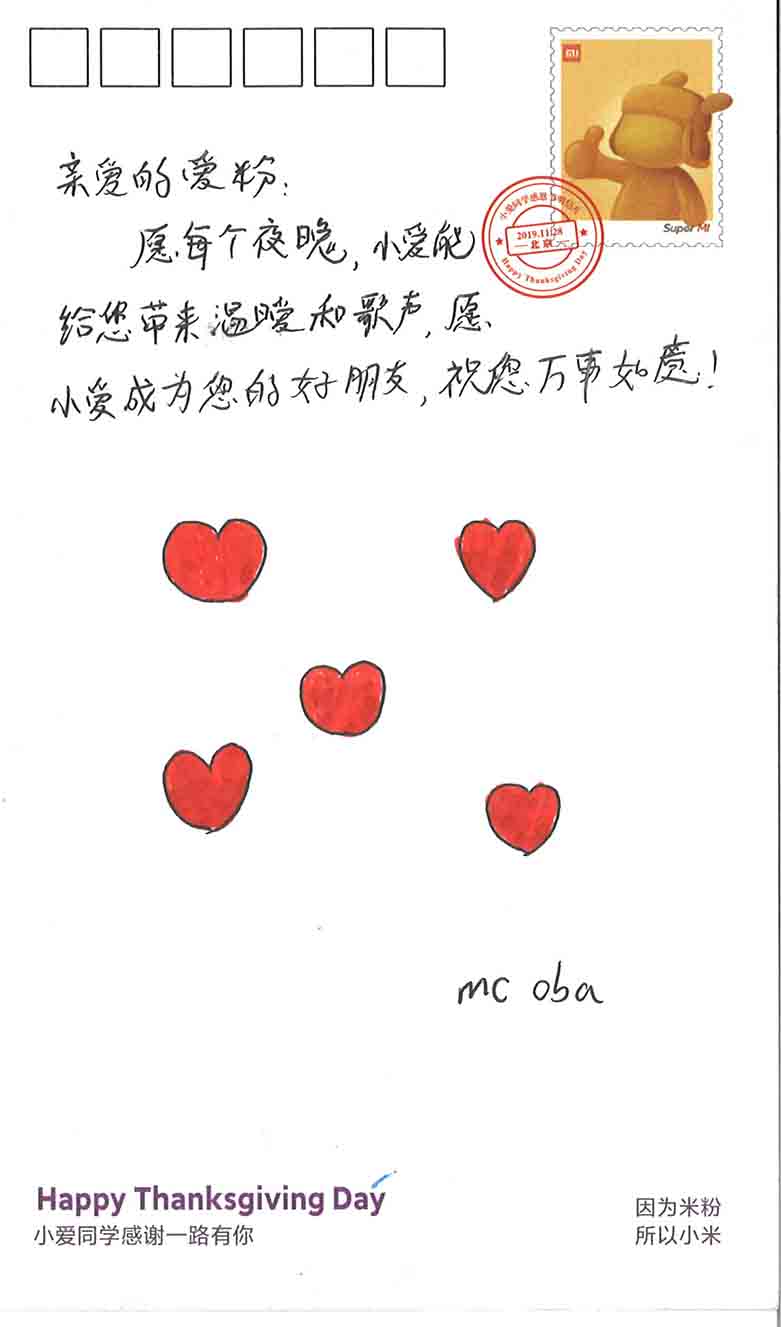 MI
Super MI
小爱同学感恩节明信片
2019.11.28
北京
Happy Thanksgiving Day
亲爱的爱粉:
愿每个夜晚,小爱能
给您带来温暖和歌声,愿
小爱成为您的好朋友,祝您万事如意!
mc oba
Happy Thanksgiving Day
小爱同学感谢一路有你
因为米粉
所以小米